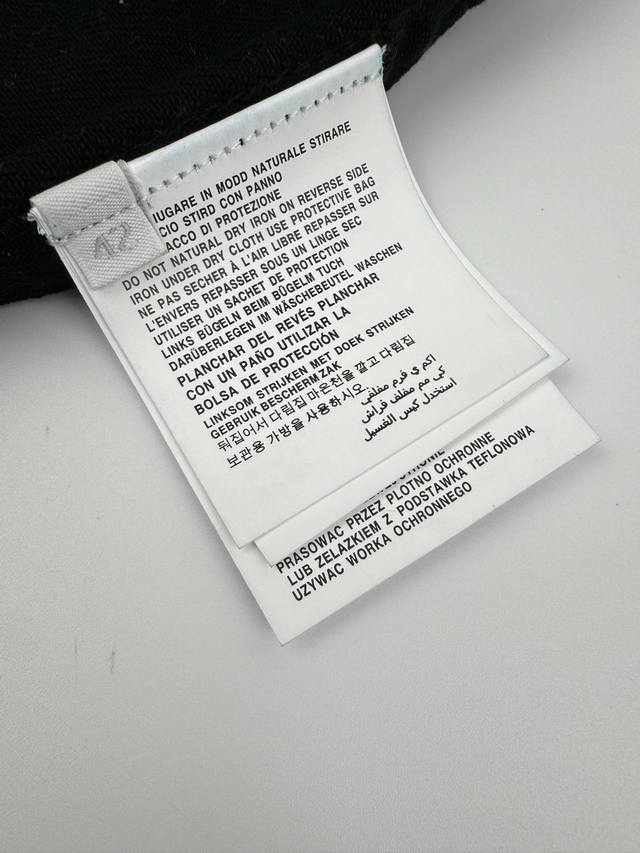 42
IUGARE IN MODD NATURALE STIRARE
CIO STIRD CON PANNO
ACCO DI PROTEZIONE
DO NOT NATURAL DRY IRON ON REVERSE SIDE
IRON UNDER DRY CLOTH USE PROTECTIVE BAG
NE PAS SECHER À L'AIR LIBRE REPASSER SUR
L'ENVERS REPASSER SOUS UN LINGE SEC
UTILISER UN SACHET DE PROTECTION
LINKS BÜGELN BEIM BÜGELM TUCH
DARÜBERLEGEN IM WÄSCHEBEUTEL WASCHEN
PLANCHAR DEL REVÉS PLANCHAR
CON UN PAÑO UTILIZAR LA
BOLSA DE PROTECCIÓN
LINKSOM STRIJKEN MET DOEK STRIJKEN
GEBRUIK BESCHERMZAK
뒤집어서 다림집 마은천을 깔고 다림집
보관용 가방을 사용하시오.
اكم ي فرم مغلفي
كي مم مظلف فراش
استخدل كيس الغسيل
PRASOWAC PRZEZ PLOTNO OCHRONNE
LUB ZELAZKIEM Z PODSTAWKA TEFLONOWA
UZYWAC WORKA OCHRONNEGO